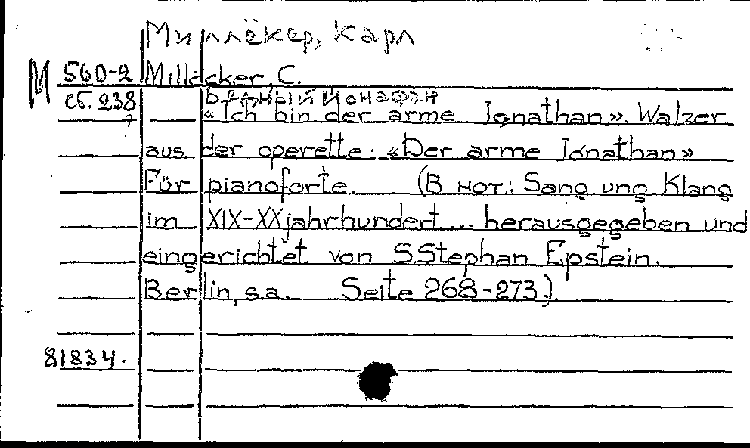 Миллёкер, Карл
М 560-2 Millöcker, C.
сб. 238 Бедный Ионафан
«Ich bin der arme Jonathan». Walzer
aus der operette: «Der arme Jonathan»
Für pianoforte. (В нот.: Sang und Klang
im XIX-XX jahrhundert ... herausgegeben und
eingerichtet von S.Stephan Epstein.
Berlin, s.a. Seite 268-273.)
81834.